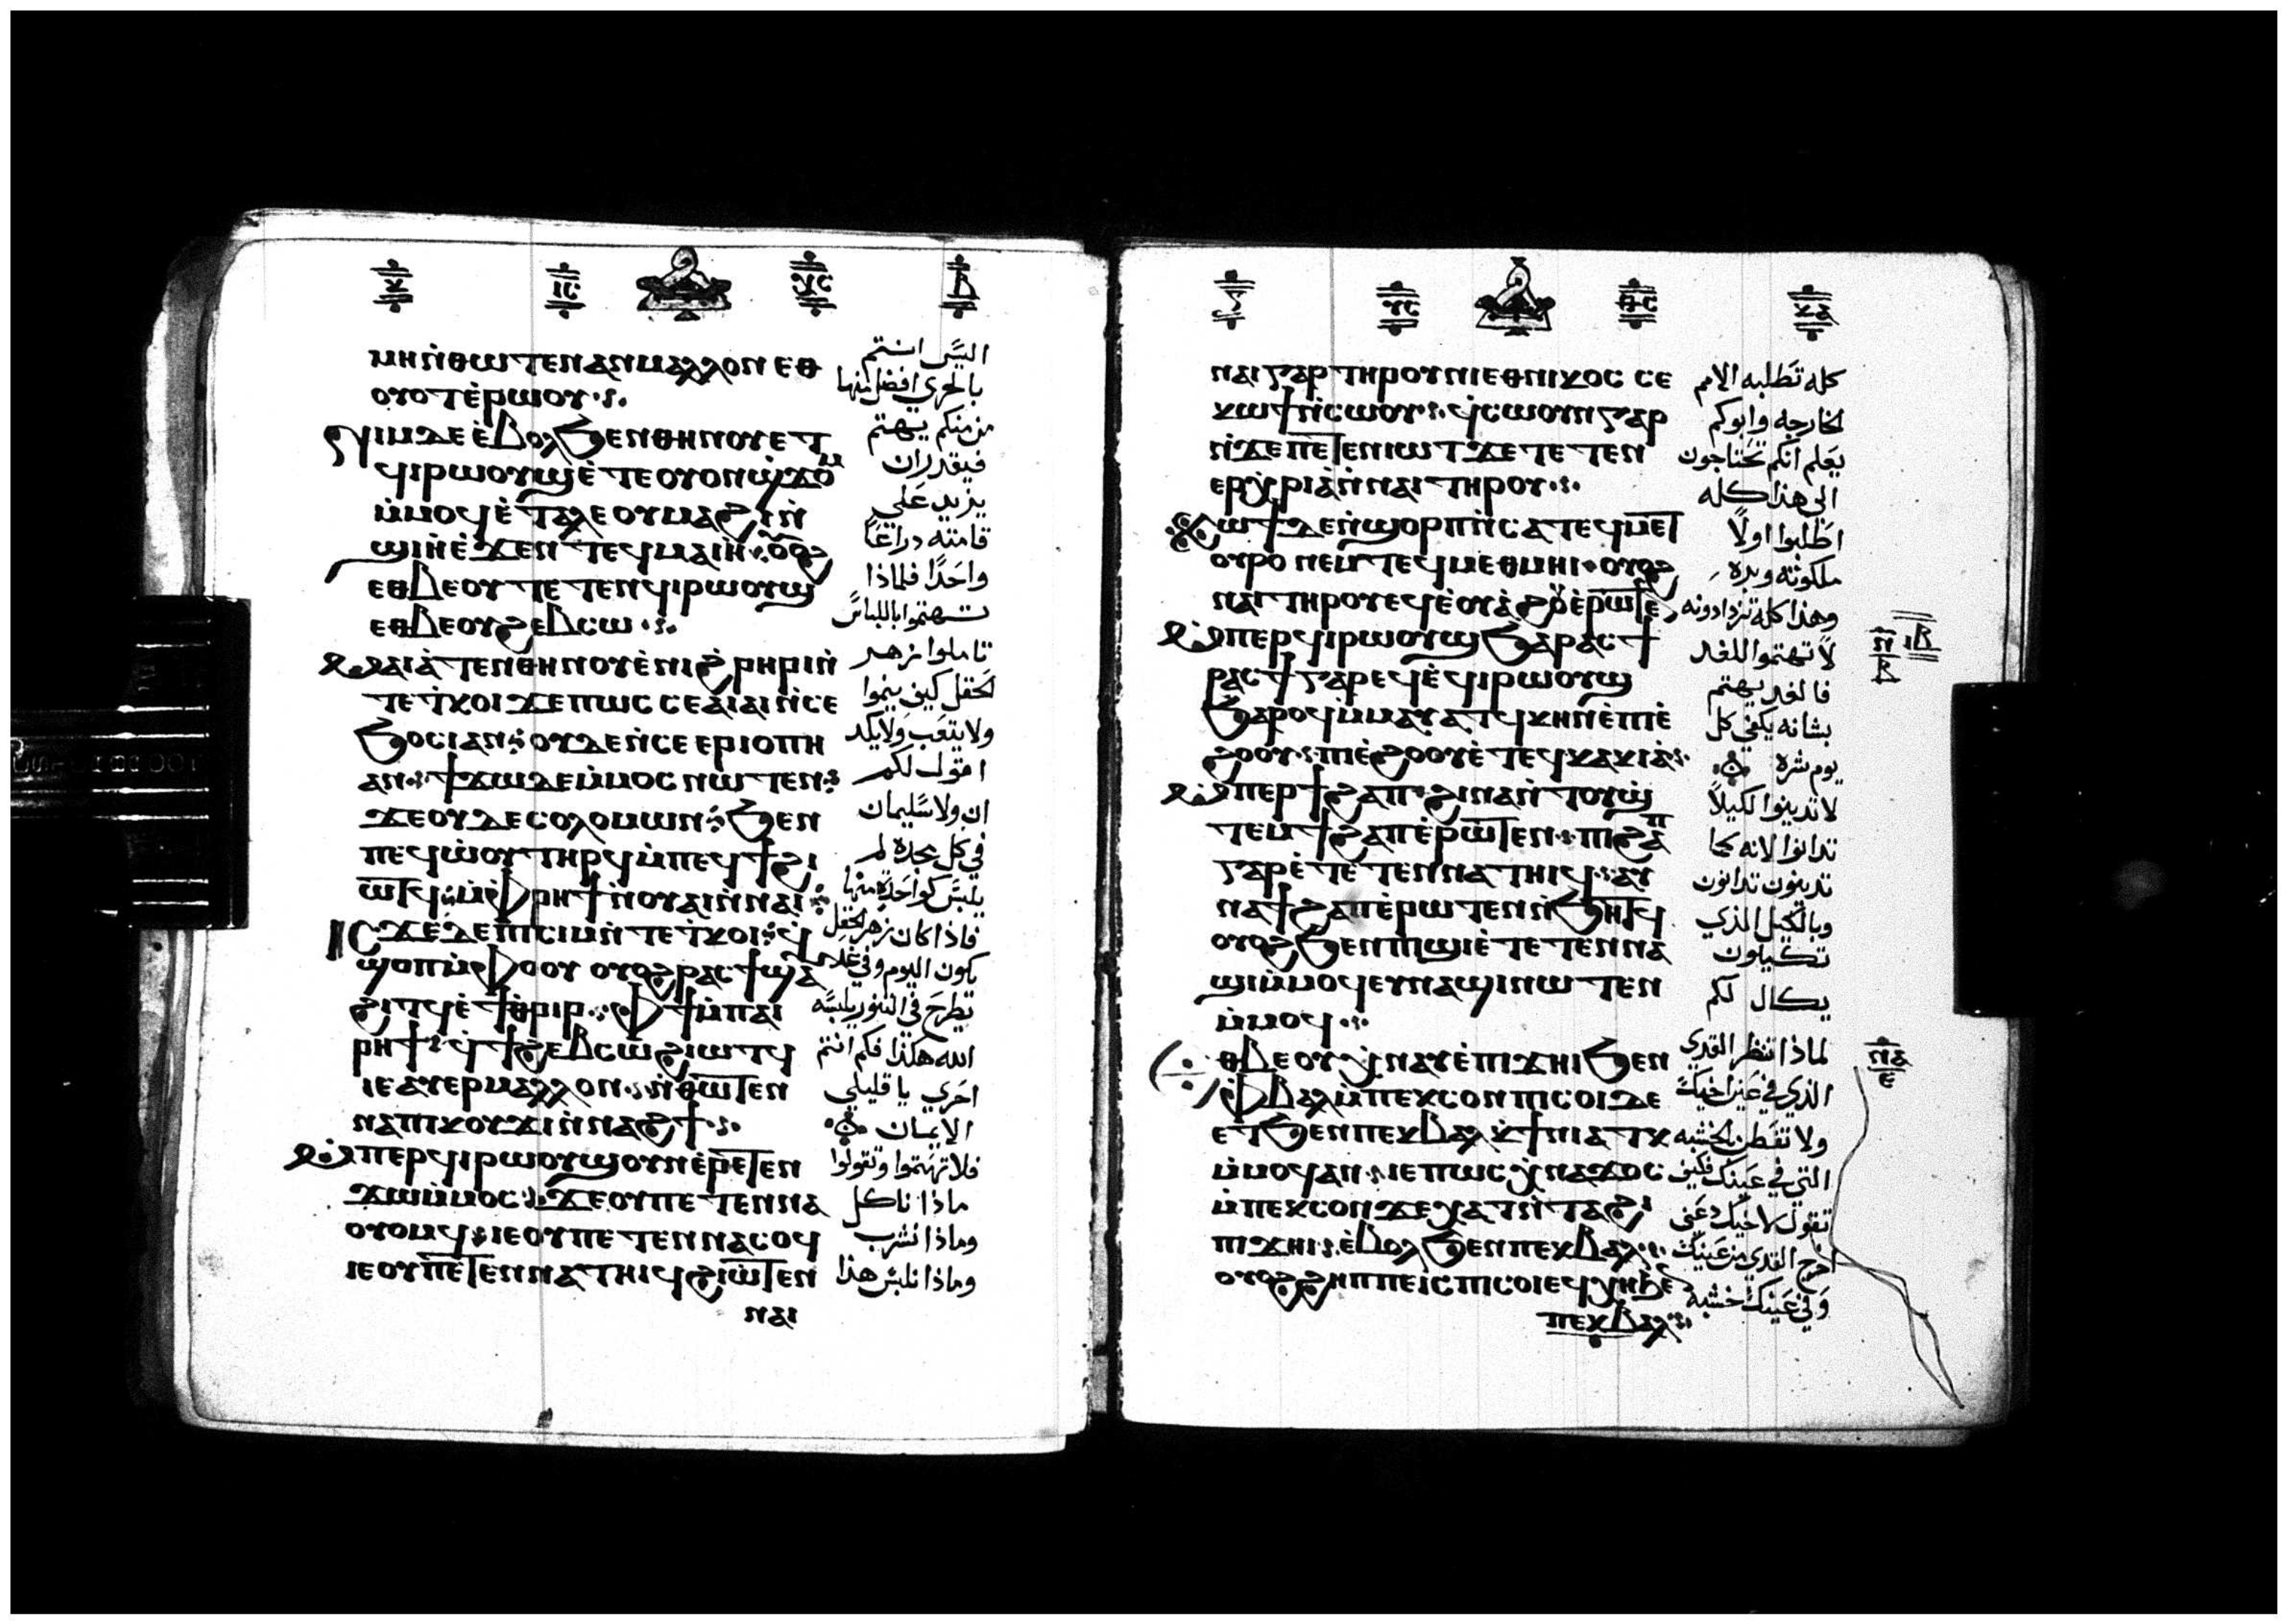 ⲕ ⲓⲥ ⲭⲥ ⲃ
ⲙⲏ ⲛ̇ⲑⲱⲧⲉⲛ ⲁⲛ ⲙⲁⲗⲗⲟⲛ ⲉⲑ
ⲟⲩⲟⲧ ⲉ̇ⲣⲱⲟⲩ
ⲛⲓⲙ ⲇⲉ ⲉ̇ⲃⲟⲗ ϧⲉⲛ ⲑⲏⲛⲟⲩ ⲉⲧ
ϥⲓⲣⲱⲟⲩϣ ⲉ̇ⲧⲉ ⲟⲩⲟⲛ ϣ̇ϫⲟⲙ
ⲙ̇ⲙⲟϥ ⲉ̇ⲧⲁⲗⲉ ⲟⲩⲙⲁϩⲓ ⲛ̇
ϣⲓⲏ ⲉ̇ϫⲉⲛ ⲧⲉϥⲙⲁⲓⲏ ⲟⲩⲟϩ
ⲉⲑⲃⲉ ⲟⲩ ⲧⲉⲧⲉⲛϥⲓⲣⲱⲟⲩϣ
ⲉⲑⲃⲉ ⲟⲩϩⲉⲃⲥⲱ
ⲙⲁⲓⲁ̇ⲧⲉⲛ ⲑⲏⲛⲟⲩ ⲉ̇ⲛⲓϩ̇ⲣⲏⲣⲓ ⲛ̇
ⲧⲉ ⲧ̇ⲕⲟⲓ ϫⲉ ⲡⲱⲥ ⲥⲉⲁⲓⲁⲓ ⲛ̇ⲥⲉ
ϧⲟⲥⲓ ⲁⲛ ⲟⲩⲇⲉ ⲛ̇ⲥⲉⲉⲣⲓⲟⲡⲏ
ⲁⲛ ϯϫⲱ ⲇⲉ ⲙ̇ⲙⲟⲥ ⲛⲱⲧⲉⲛ
ϫⲉ ⲟⲩⲇⲉ ⲥⲟⲗⲟⲙⲱⲛ ϧⲉⲛ
ⲡⲉϥⲱ̇ⲟⲩ ⲧⲏⲣϥ ⲙ̇ⲡⲉϥϯ ϩⲓ
ⲱⲧϥ ⲙ̇ⲫⲣⲏϯ ⲛ̇ⲟⲩⲁⲓ ⲛ̇ⲛⲁⲓ
ⲓⲥϫⲉ ⲇⲉ ⲡⲓⲥⲓⲙ ⲛ̇ⲧⲉ ⲧ̇ⲕⲟⲓ ϥ̇
ϣⲟⲡ ⲙ̇ⲫⲟⲟⲩ ⲟⲩⲟϩ ⲣⲁⲥϯ ϣⲁ
ϩⲓⲧϥ ⲉ̇ϯⲑⲣⲓⲣ ⲫϯ ⲙ̇ⲡⲁⲓ
ⲣⲏϯ ϥ̇ϯϩⲉⲃⲥⲱ ϩⲓⲱⲧϥ
ⲓⲉ ⲁⲩⲉⲣ ⲙⲁⲗⲗⲟⲛ ⲛ̇ⲑⲱⲧⲉⲛ
ⲛⲁⲡⲓⲕⲟⲩϫⲓ ⲛ̇ⲛⲁϩϯ
ⲙ̇ⲡⲉⲣϥⲓⲣⲱⲟⲩϣ ⲟⲩⲛ ⲉ̇ⲣⲉⲧⲉⲛ
ϫⲱ ⲙ̇ⲙⲟⲥ ϫⲉ ⲟⲩ ⲡⲉⲧⲉⲛⲛⲁ
ⲟⲩⲟⲙϥ ⲓⲉ ⲟⲩ ⲡⲉⲧⲉⲛⲛⲁⲥⲟϥ
ⲓⲉ ⲟⲩ ⲡⲉⲧⲉⲛⲛⲁⲧⲏⲓϥ ϩⲓⲱⲧⲉⲛ
ⲛⲁⲓ
اليس انتم
بالحري افضل منها
من منكم يهتم
فيقدر ان
يزيد على
قامته دراعًا
واحدًا فلماذا
تهتموا باللباس
تاملوا زهر
الحقل كيف ينموا
ولا يتعب ولا يكد
اقول لكم
ان ولا سليمان
في كل مجده لم
يلبس كواحدة منها
فاذا كان زهر الحقل
يكون اليوم وفي غد
تطرح في التنور يلبسه
الله هكذا فكم انتم
احري يا قليلي
الايمان
فلا تهتموا وتقولوا
ماذا ناكل
وماذا نشرب
وماذا نلبس هذا
ⲩⲥ ⲑⲥ ⲕⲁ
ⲛⲁⲓ ⲅⲁⲣ ⲧⲏⲣⲟⲩ ⲛⲓⲉⲑⲛⲓⲕⲟⲥ ⲥⲉ
ⲕⲱϯ ⲛ̇ⲥⲱⲟⲩ ϥ̇ⲥⲱⲟⲩⲛ ⲅⲁⲣ
ⲛ̇ϫⲉ ⲡⲉⲧⲉⲛⲓⲱⲧ ϫⲉ ⲧⲉⲧⲉⲛ
ⲉⲣⲭ̇ⲣⲓⲁ ⲛ̇ⲛⲁⲓ ⲧⲏⲣⲟⲩ
ⲕⲱϯ ⲇⲉ ⲛ̇ϣⲟⲣⲡ ⲛ̇ⲥⲁ ⲧⲉϥⲙⲉⲧ
ⲟⲩⲣⲟ ⲛⲉⲙ ⲧⲉϥⲙⲉⲑⲙⲏⲓ ⲟⲩⲟϩ
ⲛⲁⲓ ⲧⲏⲣⲟⲩ ⲉϥⲉ̇ⲟⲩⲁϩⲟⲩ ⲉ̇ⲣⲱⲧⲉⲛ
ⲙ̇ⲡⲉⲣϥⲓⲣⲱⲟⲩϣ ϧⲁ ⲣⲁⲥϯ
ⲣⲁⲥϯ ⲅⲁⲣ ⲉϥⲉ̇ϥⲓⲣⲱⲟⲩϣ
ϧⲁⲣⲟϥ ⲙ̇ⲙⲁⲩⲁⲧϥ ⲕⲏⲛ ⲉ̇ⲡⲓⲉ̇
ϩⲟⲟⲩ ⲡⲓⲉ̇ϩⲟⲟⲩ ⲉ̇ⲧⲉϥⲕⲁⲕⲓⲁ̇
ⲙ̇ⲡⲉⲣϯϩⲁⲡ ϩⲓⲛⲁ ⲛ̇ⲧⲟⲩϣ̇
ⲧⲉⲙϯϩⲁⲡ ⲉ̇ⲣⲱⲧⲉⲛ ⲡⲓϩⲁⲡ
ⲅⲁⲣ ⲉ̇ⲧⲉⲧⲉⲛⲛⲁⲧⲏⲓϥ ⲁⲩ
ⲛⲁϯϩⲁⲡ ⲉ̇ⲣⲱⲧⲉⲛ ⲛ̇ϧⲏⲧϥ
ⲟⲩⲟϩ ϧⲉⲛ ⲡⲓϣⲓ ⲉ̇ⲧⲉⲧⲉⲛⲛⲁ
ϣⲓ ⲙ̇ⲙⲟϥ ⲉⲩⲛⲁϣⲓ ⲛⲱⲧⲉⲛ
ⲙ̇ⲙⲟϥ
ⲉⲑⲃⲉ ⲟⲩ ⲭ̇ⲛⲁⲩ ⲉ̇ⲡⲓϫⲏⲓ ϧⲉⲛ
ⲫ̇ⲃⲁⲗ ⲙ̇ⲡⲉⲕⲥⲟⲛ ⲡⲓⲥⲟⲓ ⲇⲉ
ⲉⲧϧⲉⲛ ⲡⲉⲕⲃⲁⲗ ⲕ̇ϯⲛⲓⲁⲧⲕ
ⲙ̇ⲙⲟϥ ⲁⲛ ⲓⲉ ⲡⲱⲥ ⲭ̇ⲛⲁϫⲟⲥ
ⲙ̇ⲡⲉⲕⲥⲟⲛ ϫⲉ ⲭⲁⲧ ⲛ̇ⲧⲁϩⲓ
ⲡⲓϫⲏⲓ ⲉ̇ⲃⲟⲗ ϧⲉⲛ ⲡⲉⲕⲃⲁⲗ
ⲟⲩⲟϩ ϩⲏⲡⲡⲉ ⲓⲥ ⲡⲓⲥⲟⲓ ⲉϥⲭⲏ ϧⲉⲛ
ⲡⲉⲕⲃⲁⲗ
كله تطلبه الامم
الخارجه وابوكم
يعلم انكم تحتاجون
الى هذا كله
اطلبوا اولًا
ملكوته وبره
وهذا كله تزدادونه
لا تهتموا للغد
فالغد يهتم
بشانه يكفي كل
يوم شره
لا تدينوا لكيلًا
تدانوا لانه كما
تدينون تدانون
وبالكيل الذي
تكيلون
يكال لكم
لماذا تنظر القدى
الذي في عين اخيك
ولا تفطن الخشبه
التي في عينك فكيف
تقول لاخيك دعني
اخرج القدي من عينك
وفي عينك خشبه
ⲓⲃ
ⲛ
ⲃ
ⲛⲁ
ⲉ